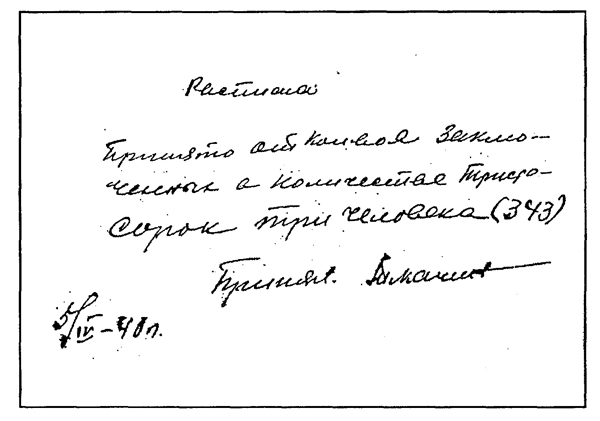 Расписка
Принято от Конвоя Заклю-
ченных в количестве Триста-
Сорок три человека (343)
Принял.
5/IV-40г.